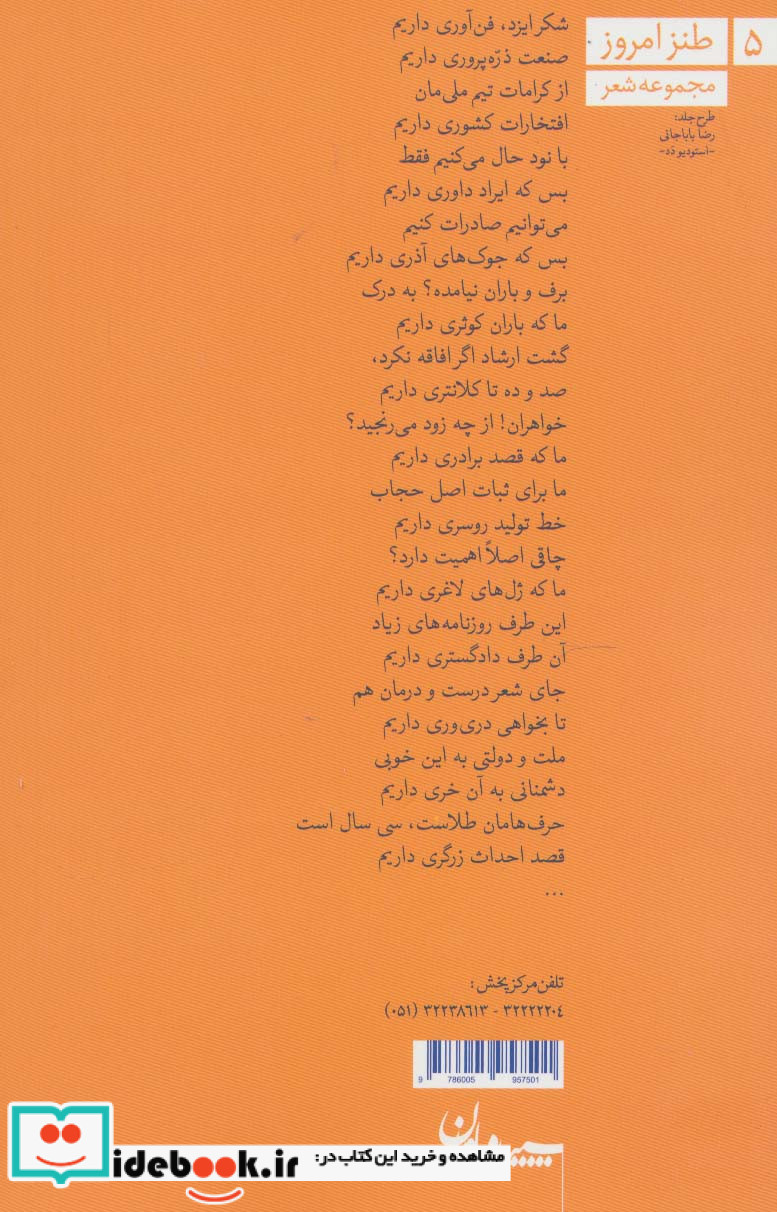 ۵
طنز امروز
مجموعه شعر
طرح جلد:
رضا باباجانی
-استودیو دَد-
شکر ایزد، فن‌آوری داریم
صنعت ذرّه‌پروری داریم
از کرامات تیم ملی‌مان
افتخارات کشوری داریم
با نود حال می‌کنیم فقط
بس که ایراد داوری داریم
می‌توانیم صادرات کنیم
بس که جوک‌های آذری داریم
برف و باران نیامده؟ به درک
ما که باران کوثری داریم
گشت ارشاد اگر افاقه نکرد،
صد و ده تا کلانتری داریم
خواهران! از چه زود می‌رنجید؟
ما که قصد برادری داریم
ما برای ثبات اصل حجاب
خط تولید روسری داریم
چاقی اصلاً اهمیت دارد؟
ما که ژل‌های لاغری داریم
این طرف روزنامه‌های زیاد
آن طرف دادگستری داریم
جای شعر درست و درمان هم
تا بخواهی دری‌وری داریم
ملت و دولتی به این خوبی
دشمنانی به آن خری داریم
حرف‌هامان طلاست، سی سال است
قصد احداث زرگری داریم
...
تلفن مرکز پخش:
۳۲۲۲۲۲۰٤ - ۳۲۲۳۸٦۱۳ (۰۵۱)
9 786005 957501
مشاهده و خرید این کتاب در:
idebook.ir